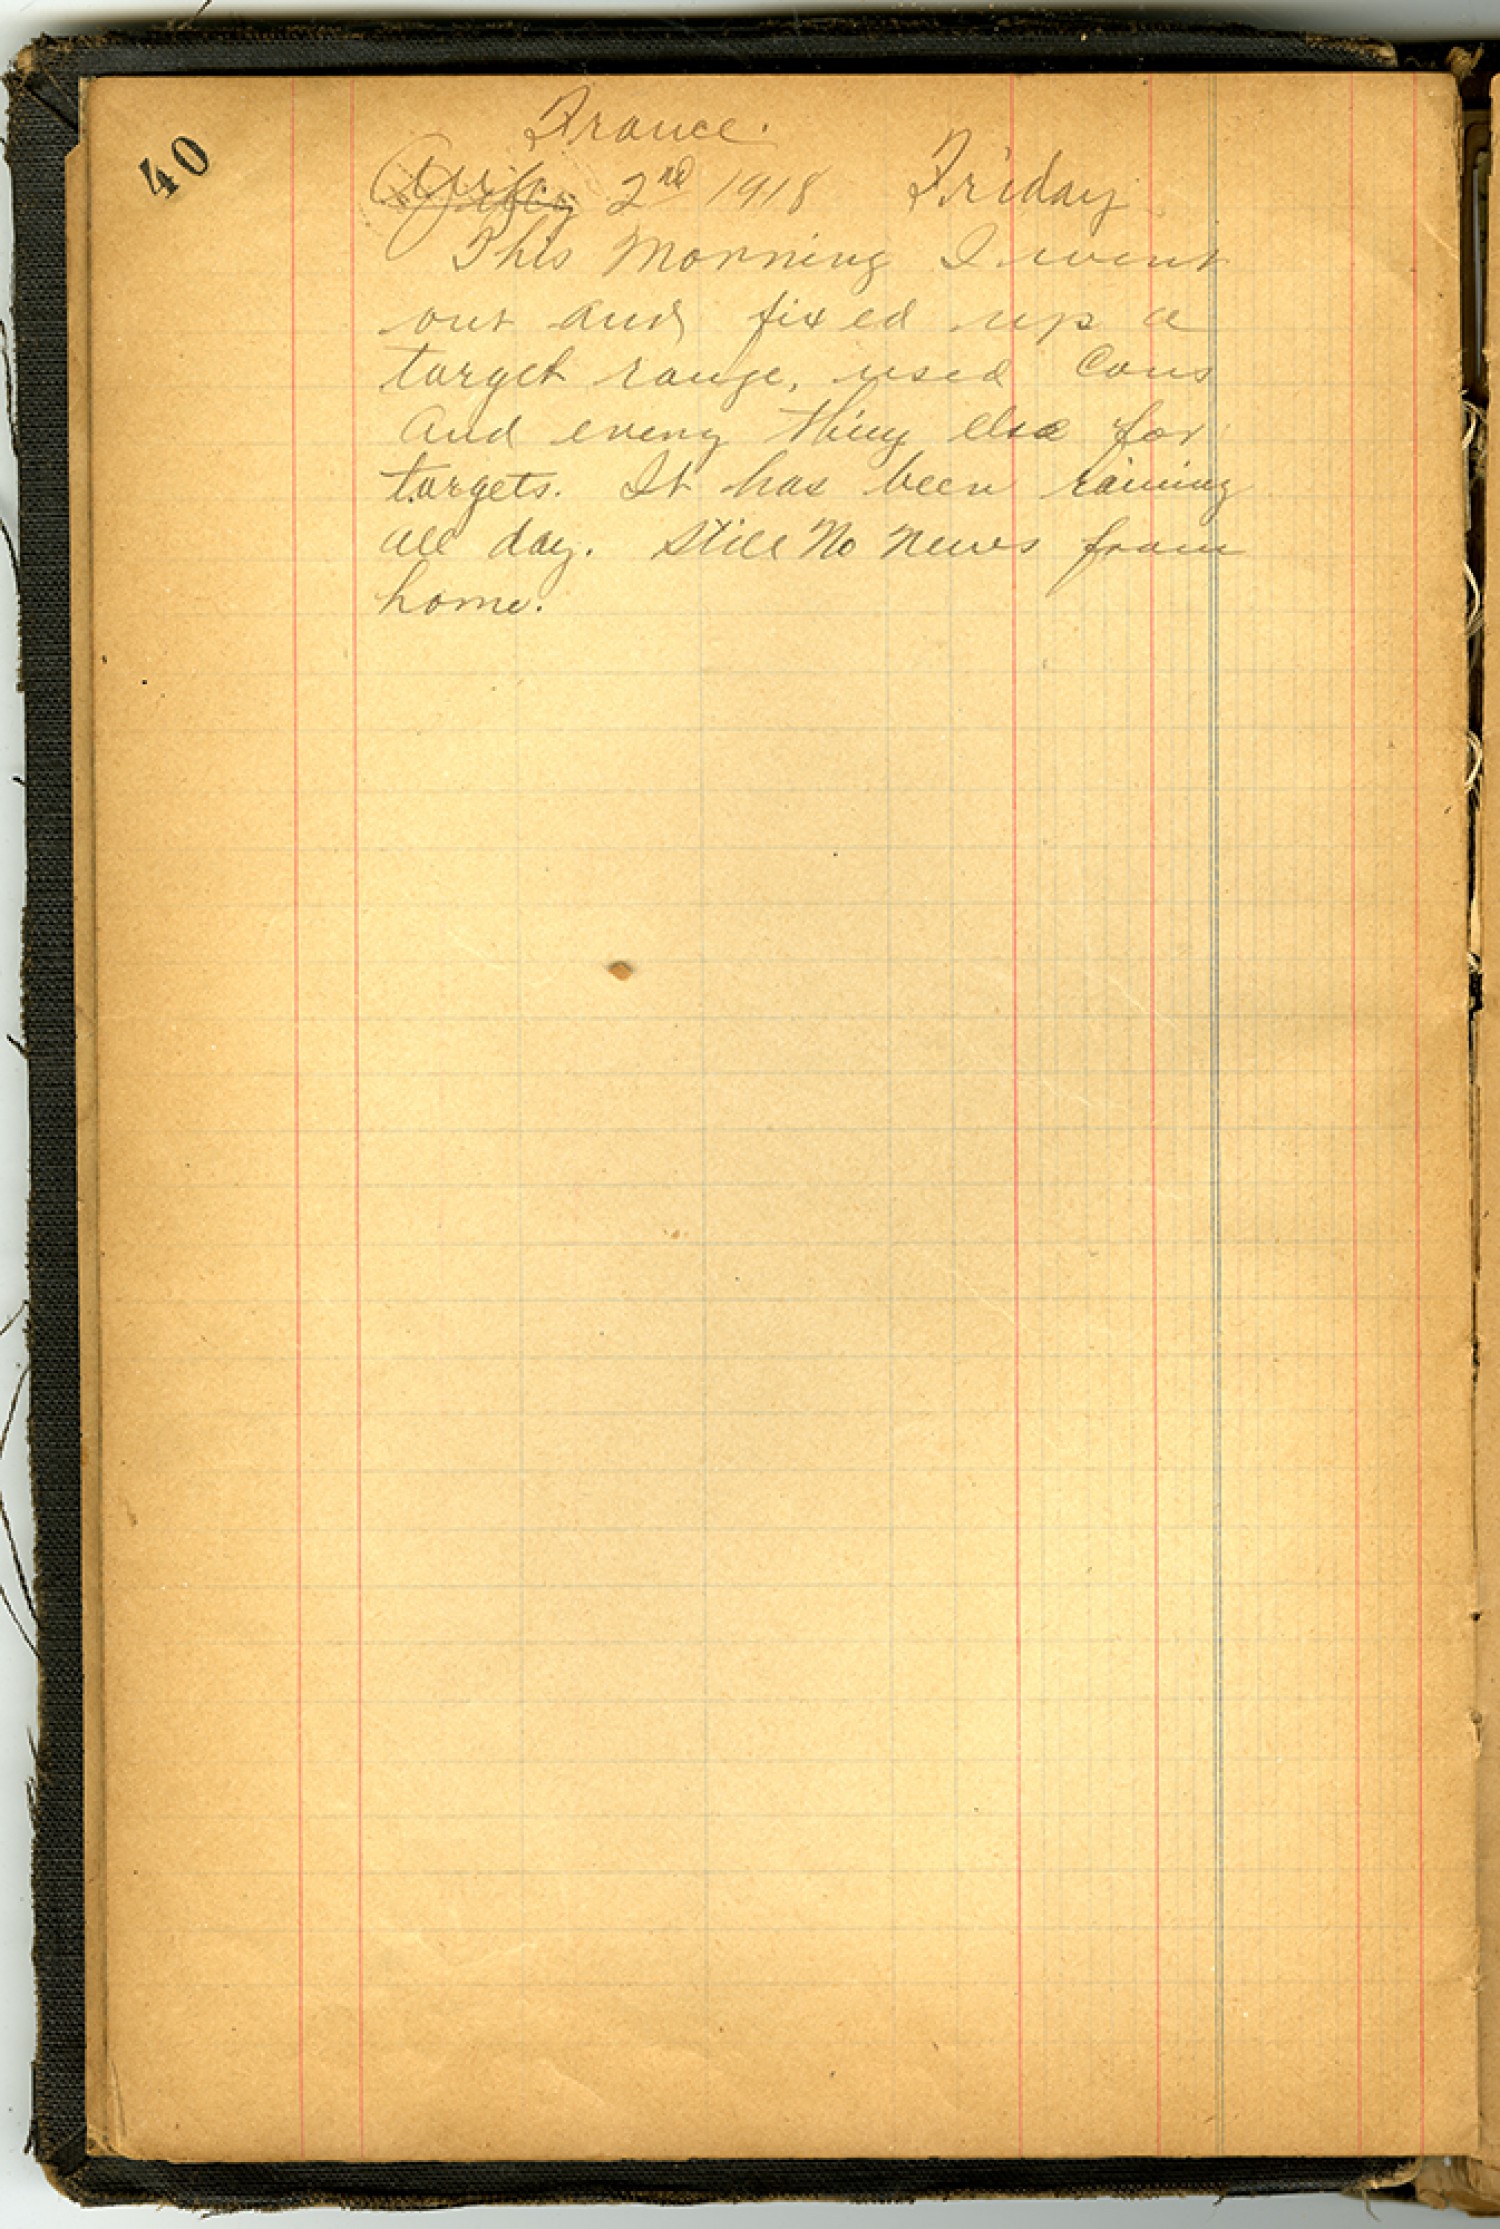 40
France.
2nd 1918 Friday
This Morning I went
out and fixed up a
target range, used Cans
And every thing else for
targets. It has been raining
all day. Still No News from
home.